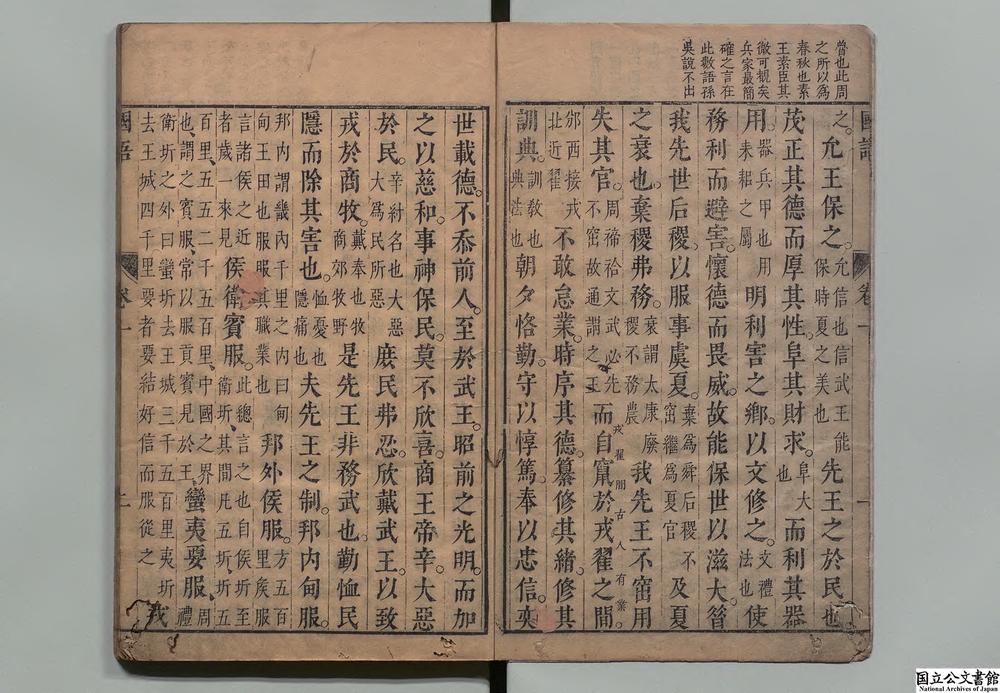 曾也此周
之所以為
春秋也素
王素臣其
微可覩矣
兵家最簡
確之言在
此數語孫
吳說不出
國語
卷一
一
之。允王保之。允信也信武王能保時夏之美也先王之於民也
茂正其德而厚其性。阜其財求。阜大也而利其器
用。器兵甲也用耒耜之屬明利害之鄉。以文修之。文禮法也使
務利而避害。懷德而畏威。故能保世以滋大。昔
我先世后稷。以服事虞夏。棄為舜后稷不窋繼為夏官及夏
之衰也。棄稷弗務。衰謂太康廢稷不務農我先王不窋用
失其官。周禘祫文武必先不窋故通謂之王而自竄於戎翟之間。
戎翟間古人有業。
邠西接戎北近翟不敢怠業。時序其德。纂修其緒。修其
訓典。訓教也典法也朝夕恪勤。守以惇篤。奉以忠信。奕
世載德。不忝前人。至於武王。昭前之光明。而加
之以慈和。事神保民。莫不欣喜。商王帝辛。大惡
於民。辛紂名也大惡大為民所惡庶民弗忍。欣戴武王。以致
戎於商牧。戴奉也牧商郊牧野是先王非務武也。勤恤民
隱而除其害也。恤憂也隱痛也夫先王之制。邦內甸服。
邦內謂畿內千里之內曰甸甸王田也服其職業也邦外侯服。方五百里侯服
言諸侯之近者歲一來見侯衛賓服。此總言之也自侯圻至衛圻其間凡五圻圻五
百里五五二千五百里中國之界也謂之賓服常以服貢賓見於王蠻夷要服。周禮
衛圻之外曰蠻圻去王城三千五百里夷圻去王城四千里要者要結好信而服從之戎
國語
卷一
二
国立公文書館
National Archives of Japan